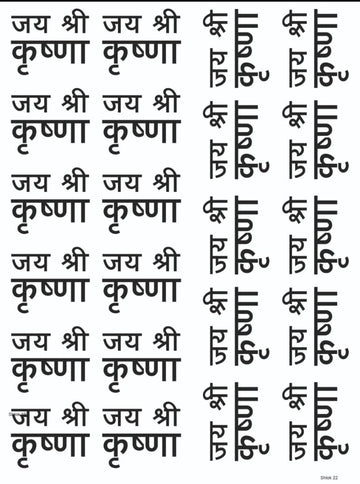 जय श्री जय श्री
कृष्णा कृष्णा
जय श्री जय श्री
कृष्णा कृष्णा
जय श्री जय श्री
कृष्णा कृष्णा
जय श्री जय श्री
कृष्णा कृष्णा
जय श्री जय श्री
कृष्णा कृष्णा
जय श्री जय श्री
कृष्णा कृष्णा
जय श्री
कृष्णा
जय श्री
कृष्णा
जय श्री
कृष्णा
जय श्री
कृष्णा
जय श्री
कृष्णा
जय श्री
कृष्णा
जय श्री
कृष्णा
जय श्री
कृष्णा
जय श्री
कृष्णा
जय श्री
कृष्णा
22